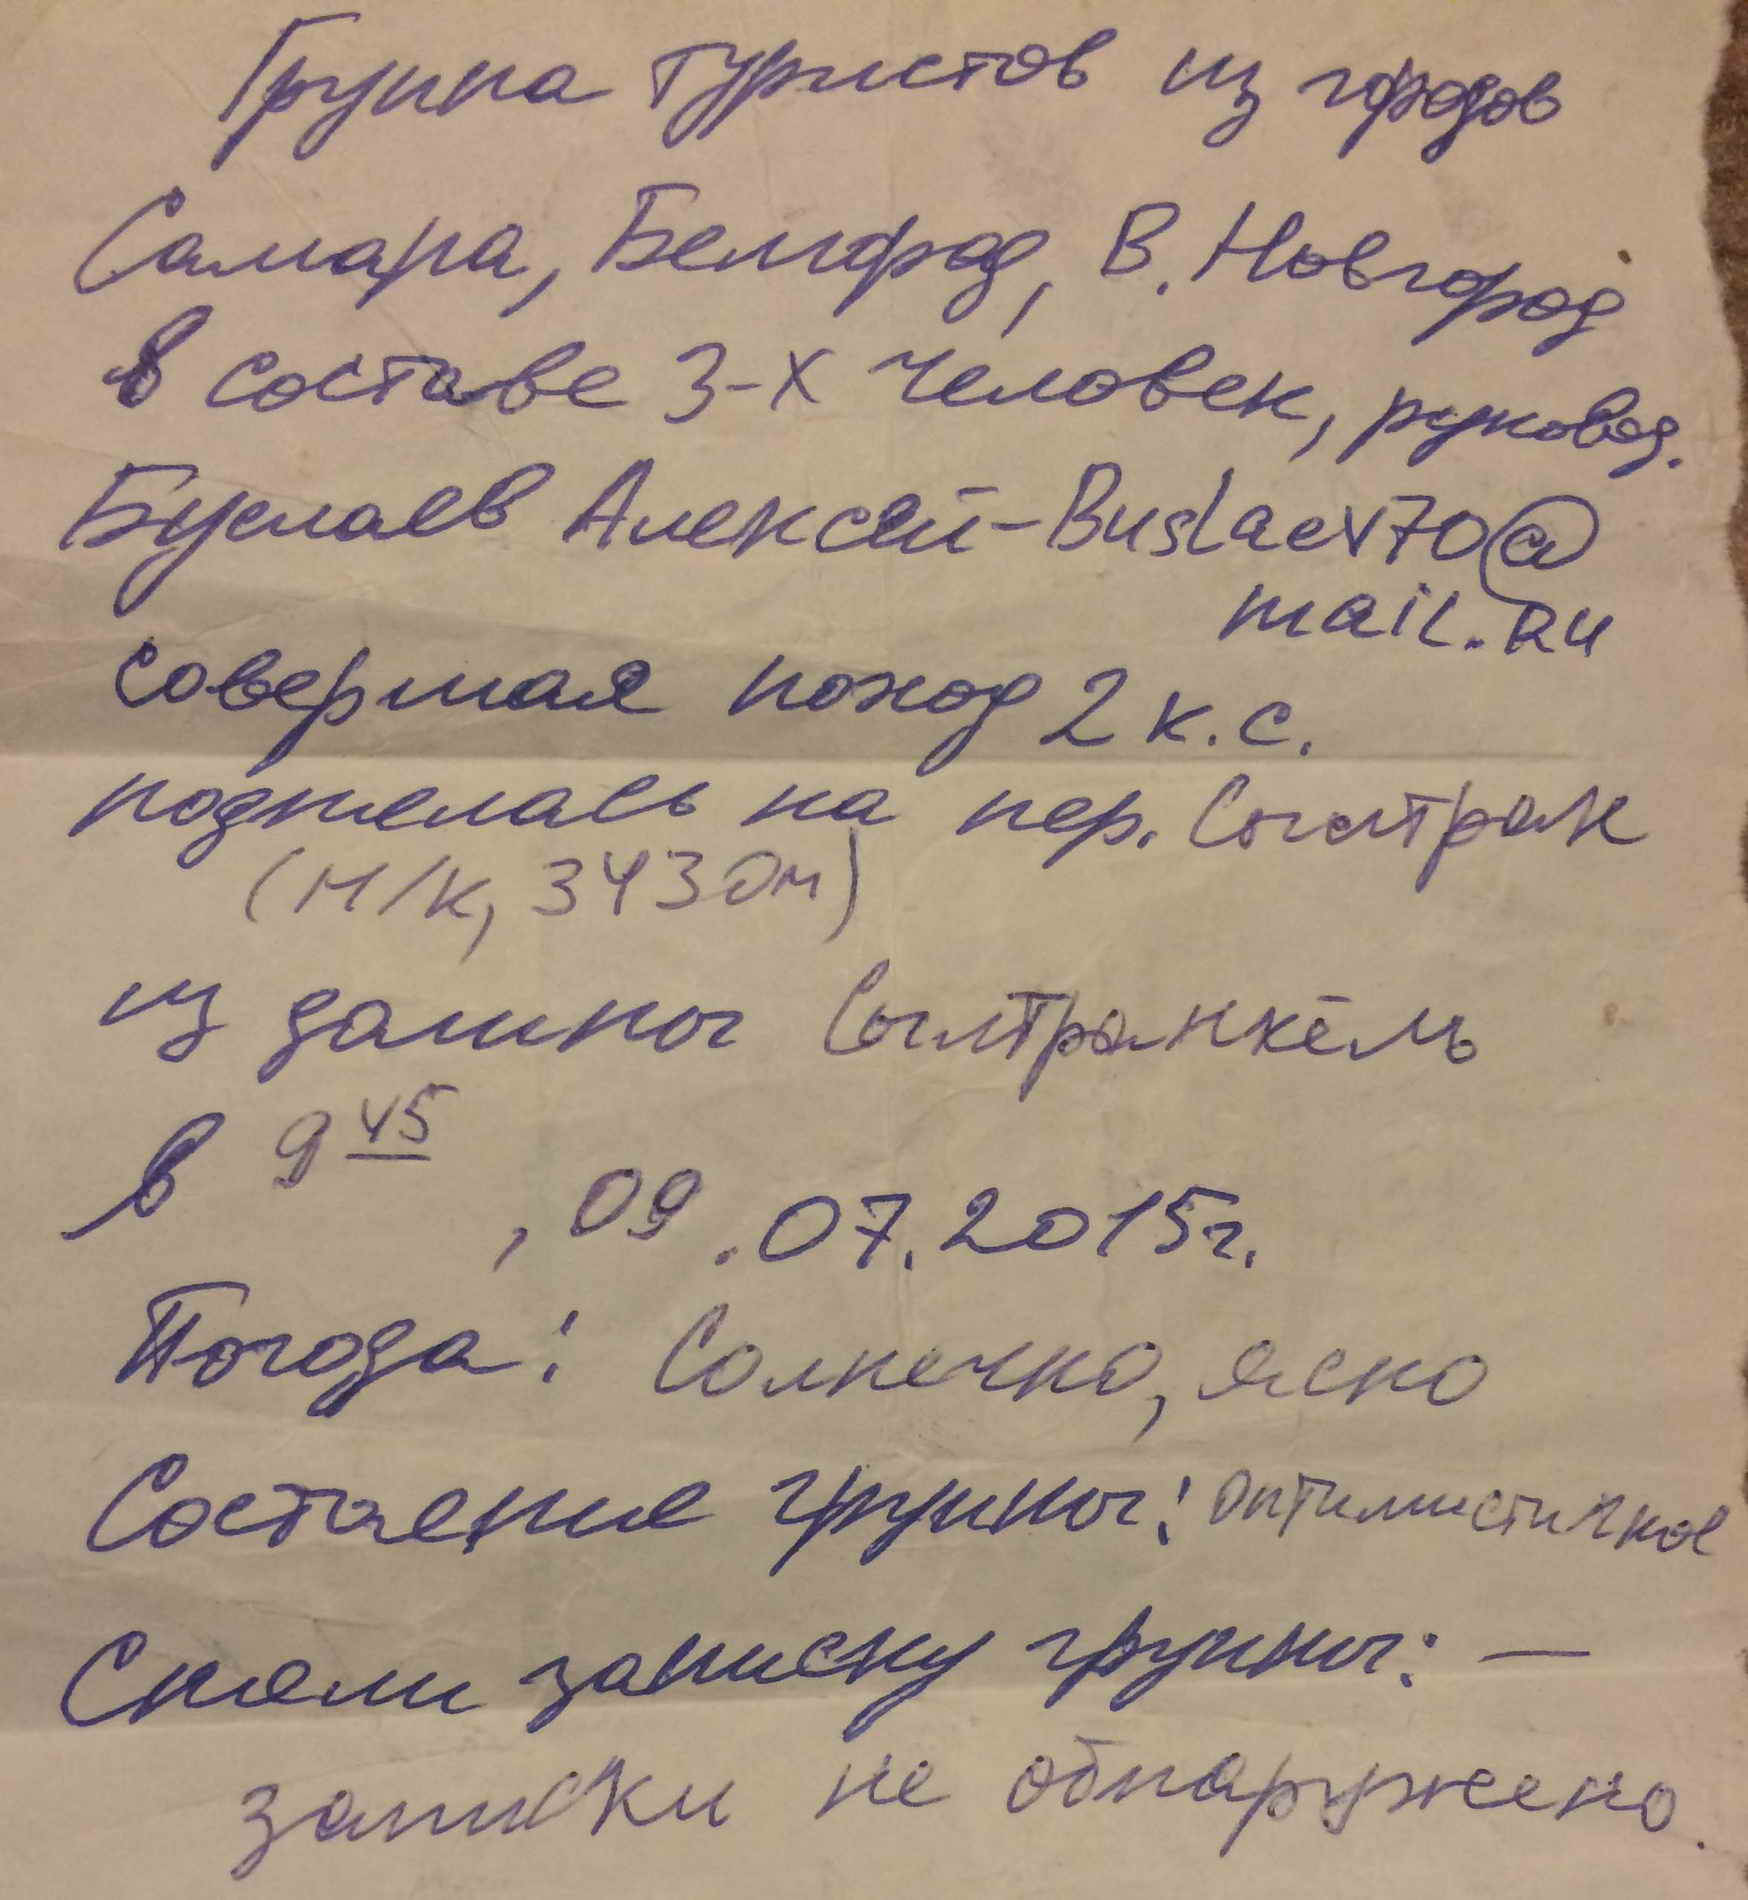 Группа туристов из городов
Самара, Белгород, В. Новгород
в составе 3-х человек, руковод.
Буслаев Алексей - Buslaev70@
mail.ru
совершая поход 2 к.с.
поднялась на пер. Сылтран
(н/к, 3430м)
из долины Сылтранкёль
в 9 45, 09.07.2015г.
Погода: Солнечно, ясно
Состояние группы: оптимистичное
Сняли записку группы: —
записки не обнаружено.